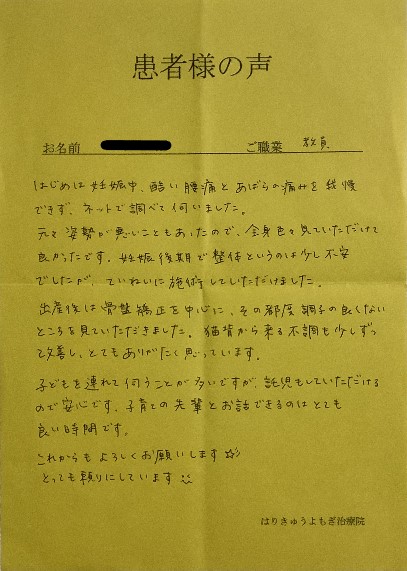 患者様の声
お名前 ご職業 教員
はじめは妊娠中、酷い腰痛とあばらの痛みを我慢
できず、ネットで調べて伺いました。
元々姿勢が悪いこともあったので、全身色々見ていただけて
良かったです。妊娠後期で整体というのは少し不安
でしたが、ていねいに施術していただけました。
出産後は骨盤矯正を中心に、その都度調子の良くない
ところを見ていただきました。猫背から来る不調も少しずつ
改善し、とてもありがたく思っています。
子どもを連れて伺うことが多いですが、託児もしていただける
ので安心です。子育ての先輩とお話できるのはとても
良い時間です。
これからもよろしくお願いします
とっても頼りにしています
はりきゅうよもぎ治療院